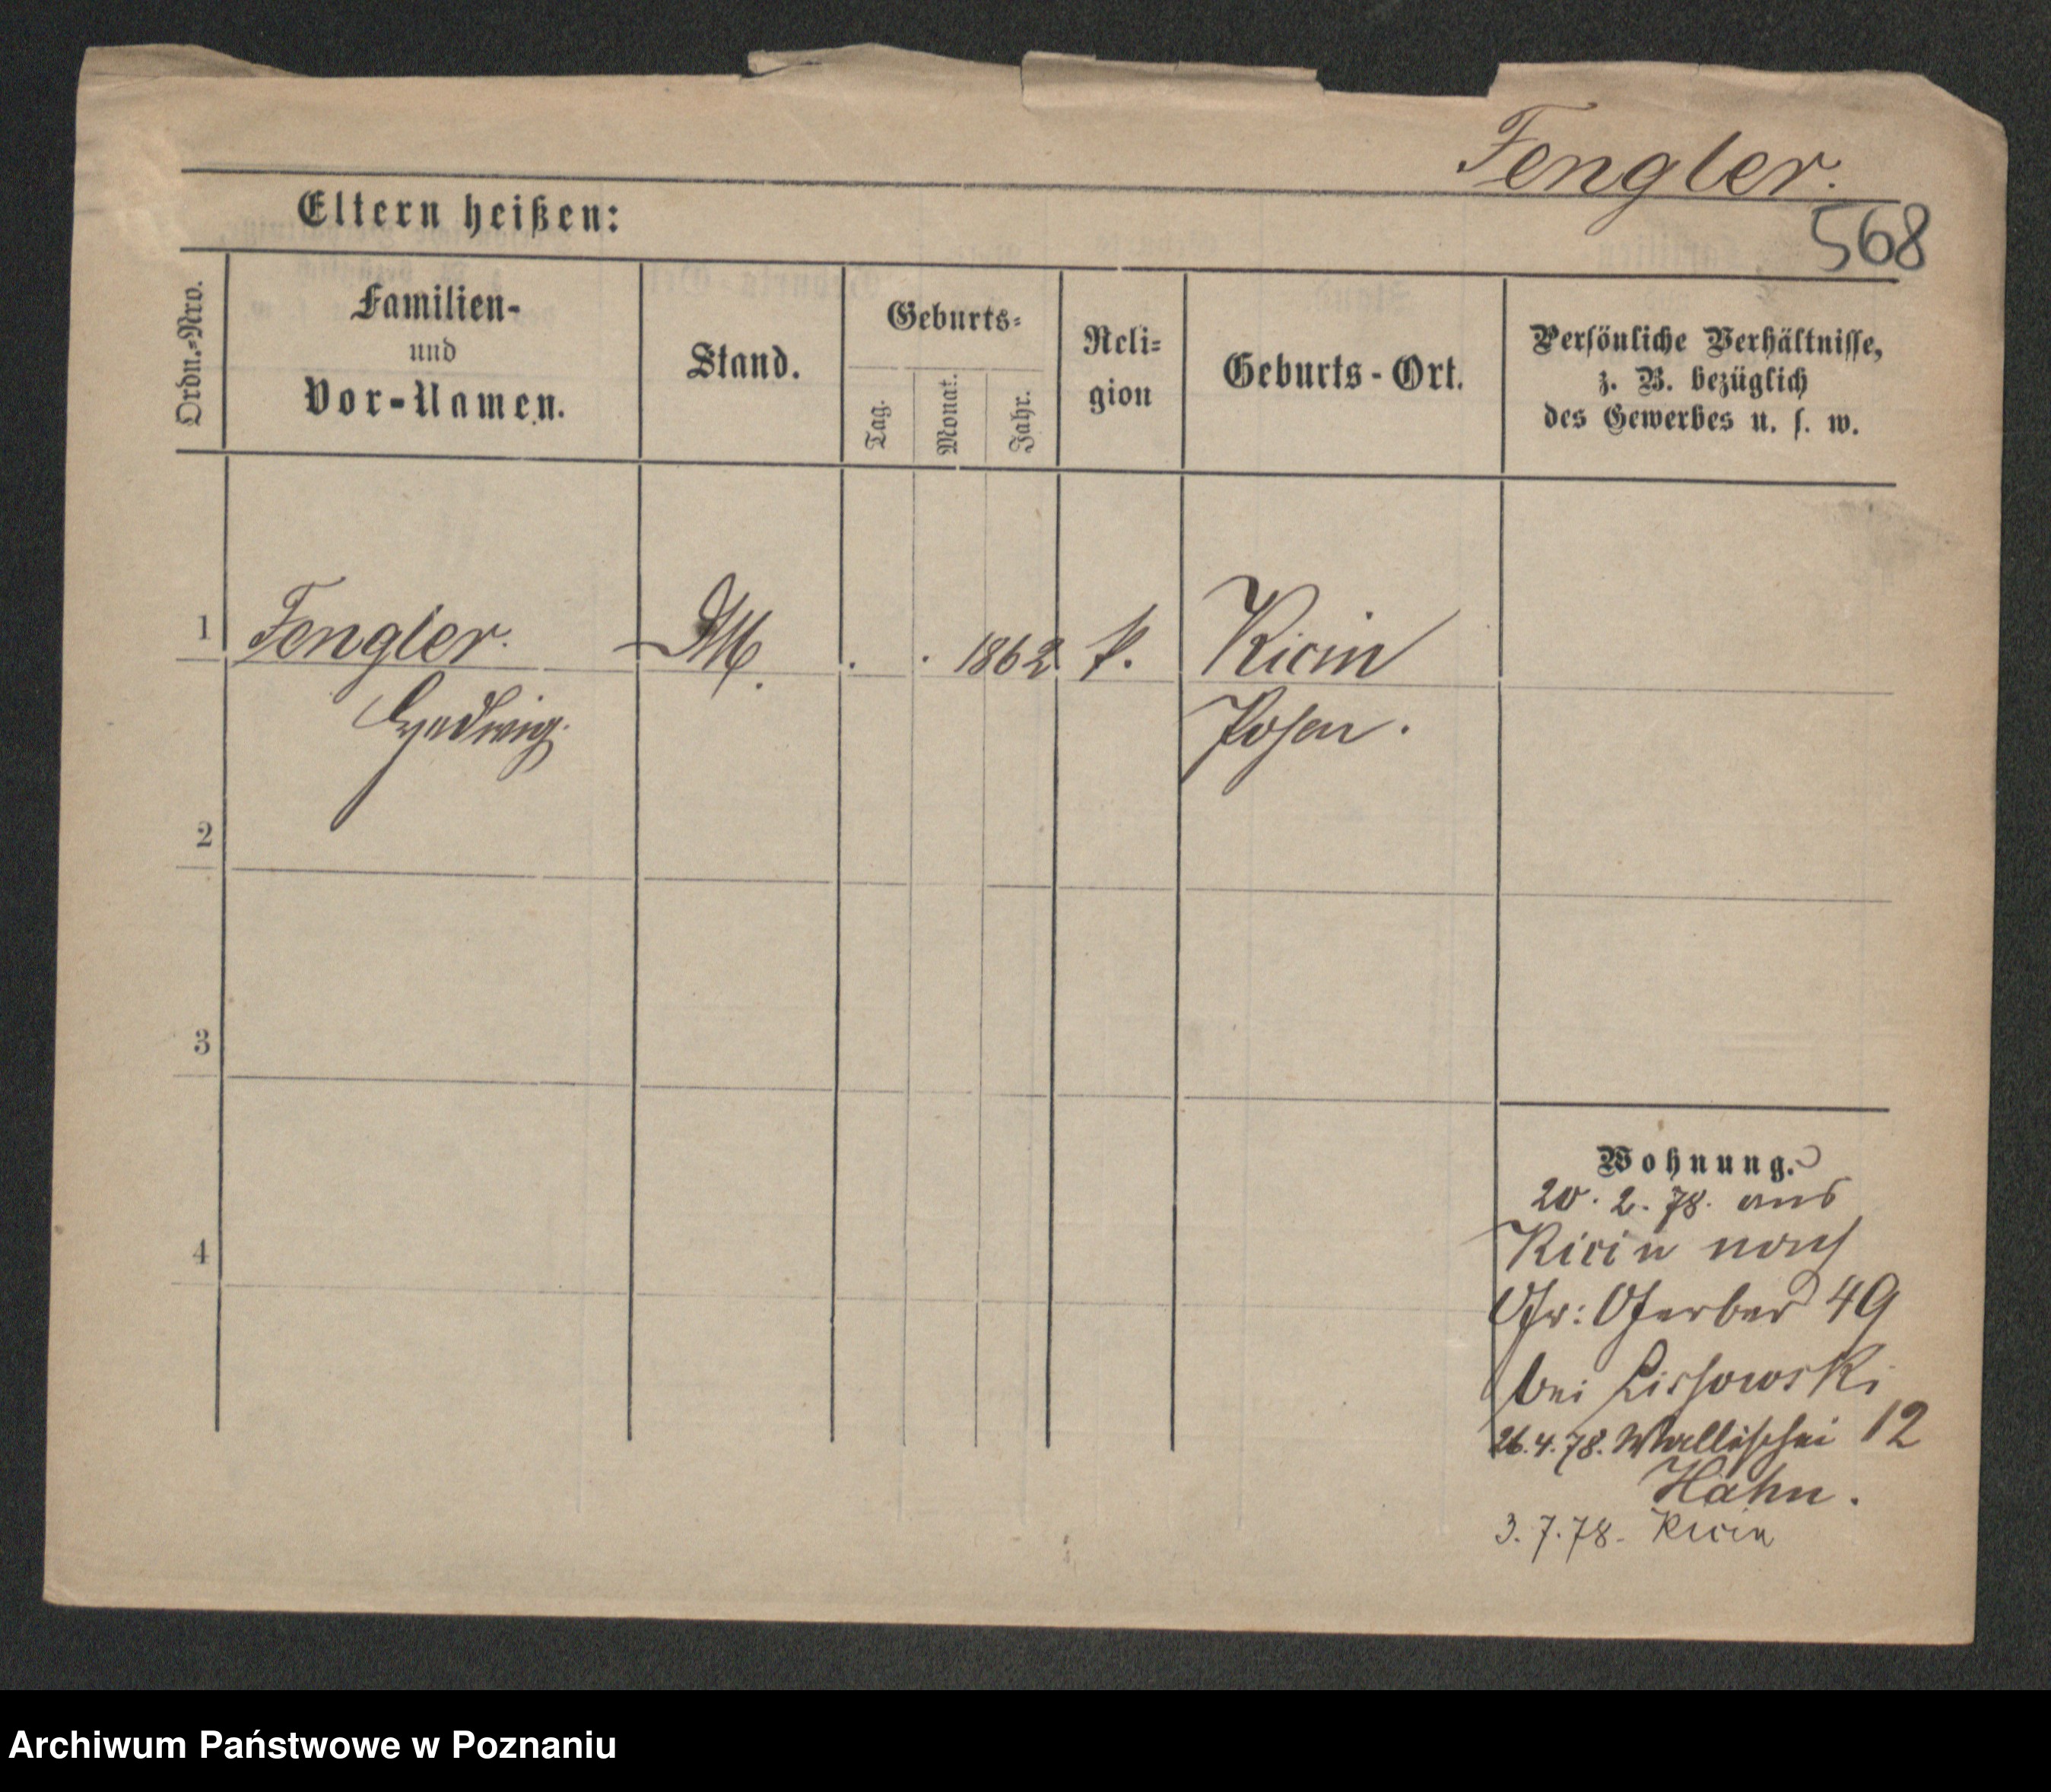 Fengler.
568
Eltern heißen:
Ordn.-Nro.
Familien-
und
Vor-Namen.
Stand.
Geburts-
Tag.
Monat.
Jahr.
Reli-
gion
Geburts-Ort.
Persönliche Verhältnisse,
z. B. bezüglich
des Gewerbes u. s. w.
1 Fengler. . . 1862 k. Kicin
Hedwig. Posen.
2
3
4
Wohnung.
20. 2. 78. aus
Kicin nach
Gr: Gerber 49
bei Lissowski
26. 4. 78. Wallischei 12
Hahn.
3. 7. 78. Kicin
Archiwum Państwowe w Poznaniu